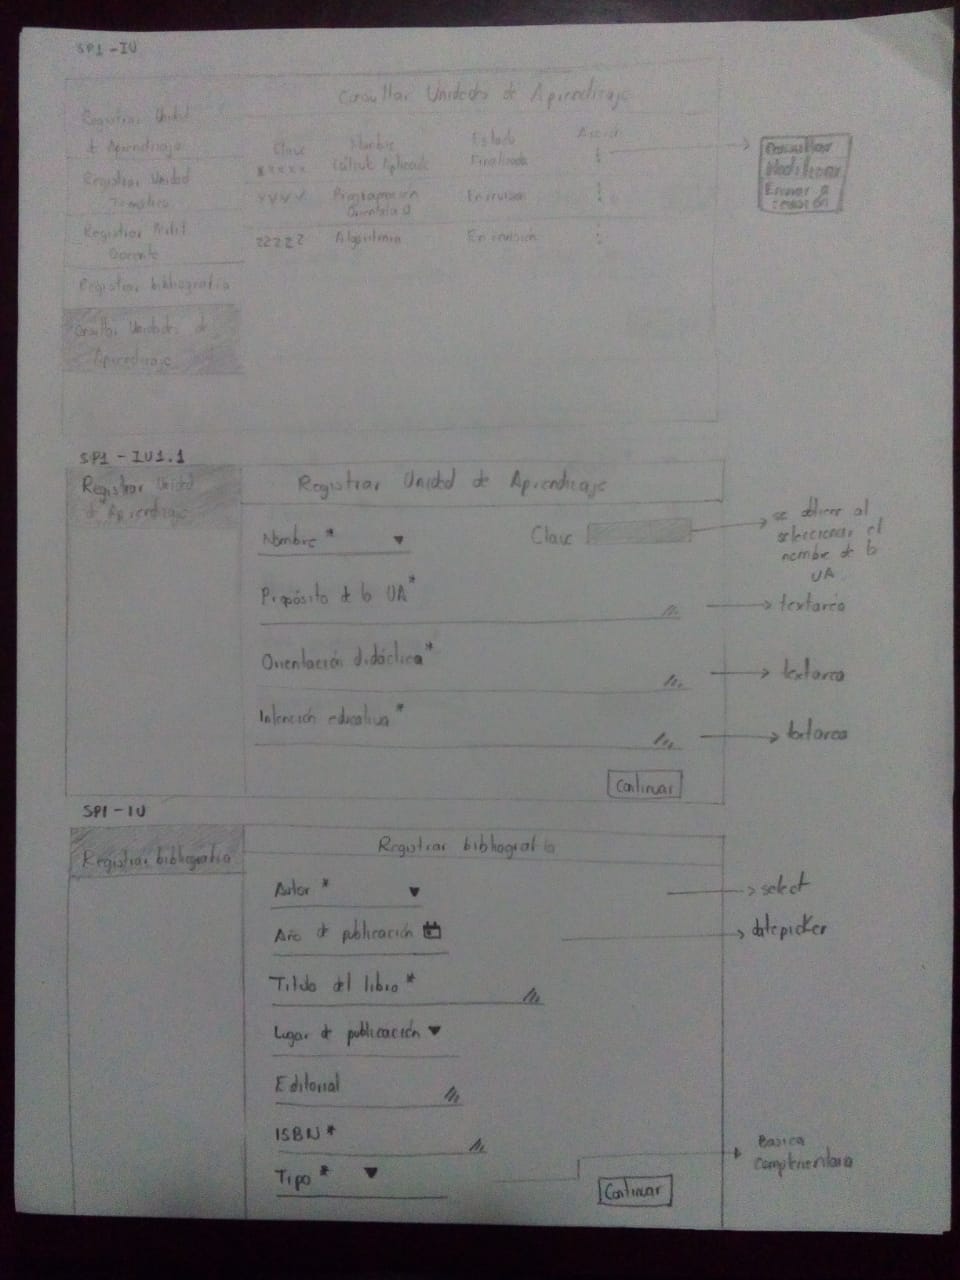 SP1-IU
Consultar Unidades de Aprendizaje
Registrar Unidad
d Aprendizaje
Registrar Unidad
Temática
Registrar Perfil
Docente
Registrar bibliografía
Consultar Unidades de
Aprendizaje
Clave Nombre Estado Acción
xxxxx Cálculo Aplicado Finalizada
yyyy Programación
Orientada O En revisión
zzzzz Algoritmia En revisión
Consultar
Modificar
Enviar a
revisión
SP1-IU1.1
Registrar Unidad
d Aprendizaje
Registrar Unidad de Aprendizaje
Nombre *
Clave
se obtiene al
seleccionar el
nombre de la
UA
Propósito de la UA*
textarea
Orientación didáctica*
textarea
Intención educativa*
textarea
Continuar
SP1-IU
Registrar bibliografía
Registrar bibliografía
Autor *
select
Año d publicación
datepicker
Titulo del libro*
Lugar d publicación
Editorial
ISBN*
Tipo *
Basica
Complementaria
Continuar